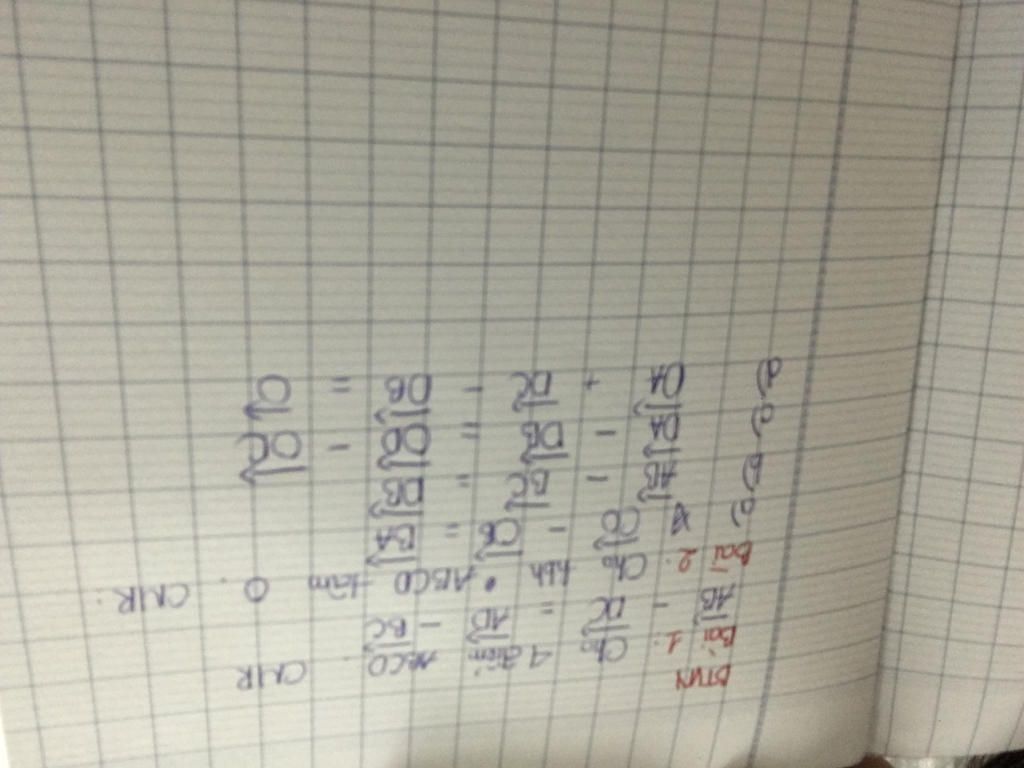 BTVN
Bài 1: Cho 4 điểm ABCD. CMR
AB - DC = AB - BC
Bài 2: Cho hbh ABCD tâm O. CMR:
a) CO - OB = BA
b) AB - BC = DB
c) DA - DB = OD - OC
d) DA + DC - DB = O